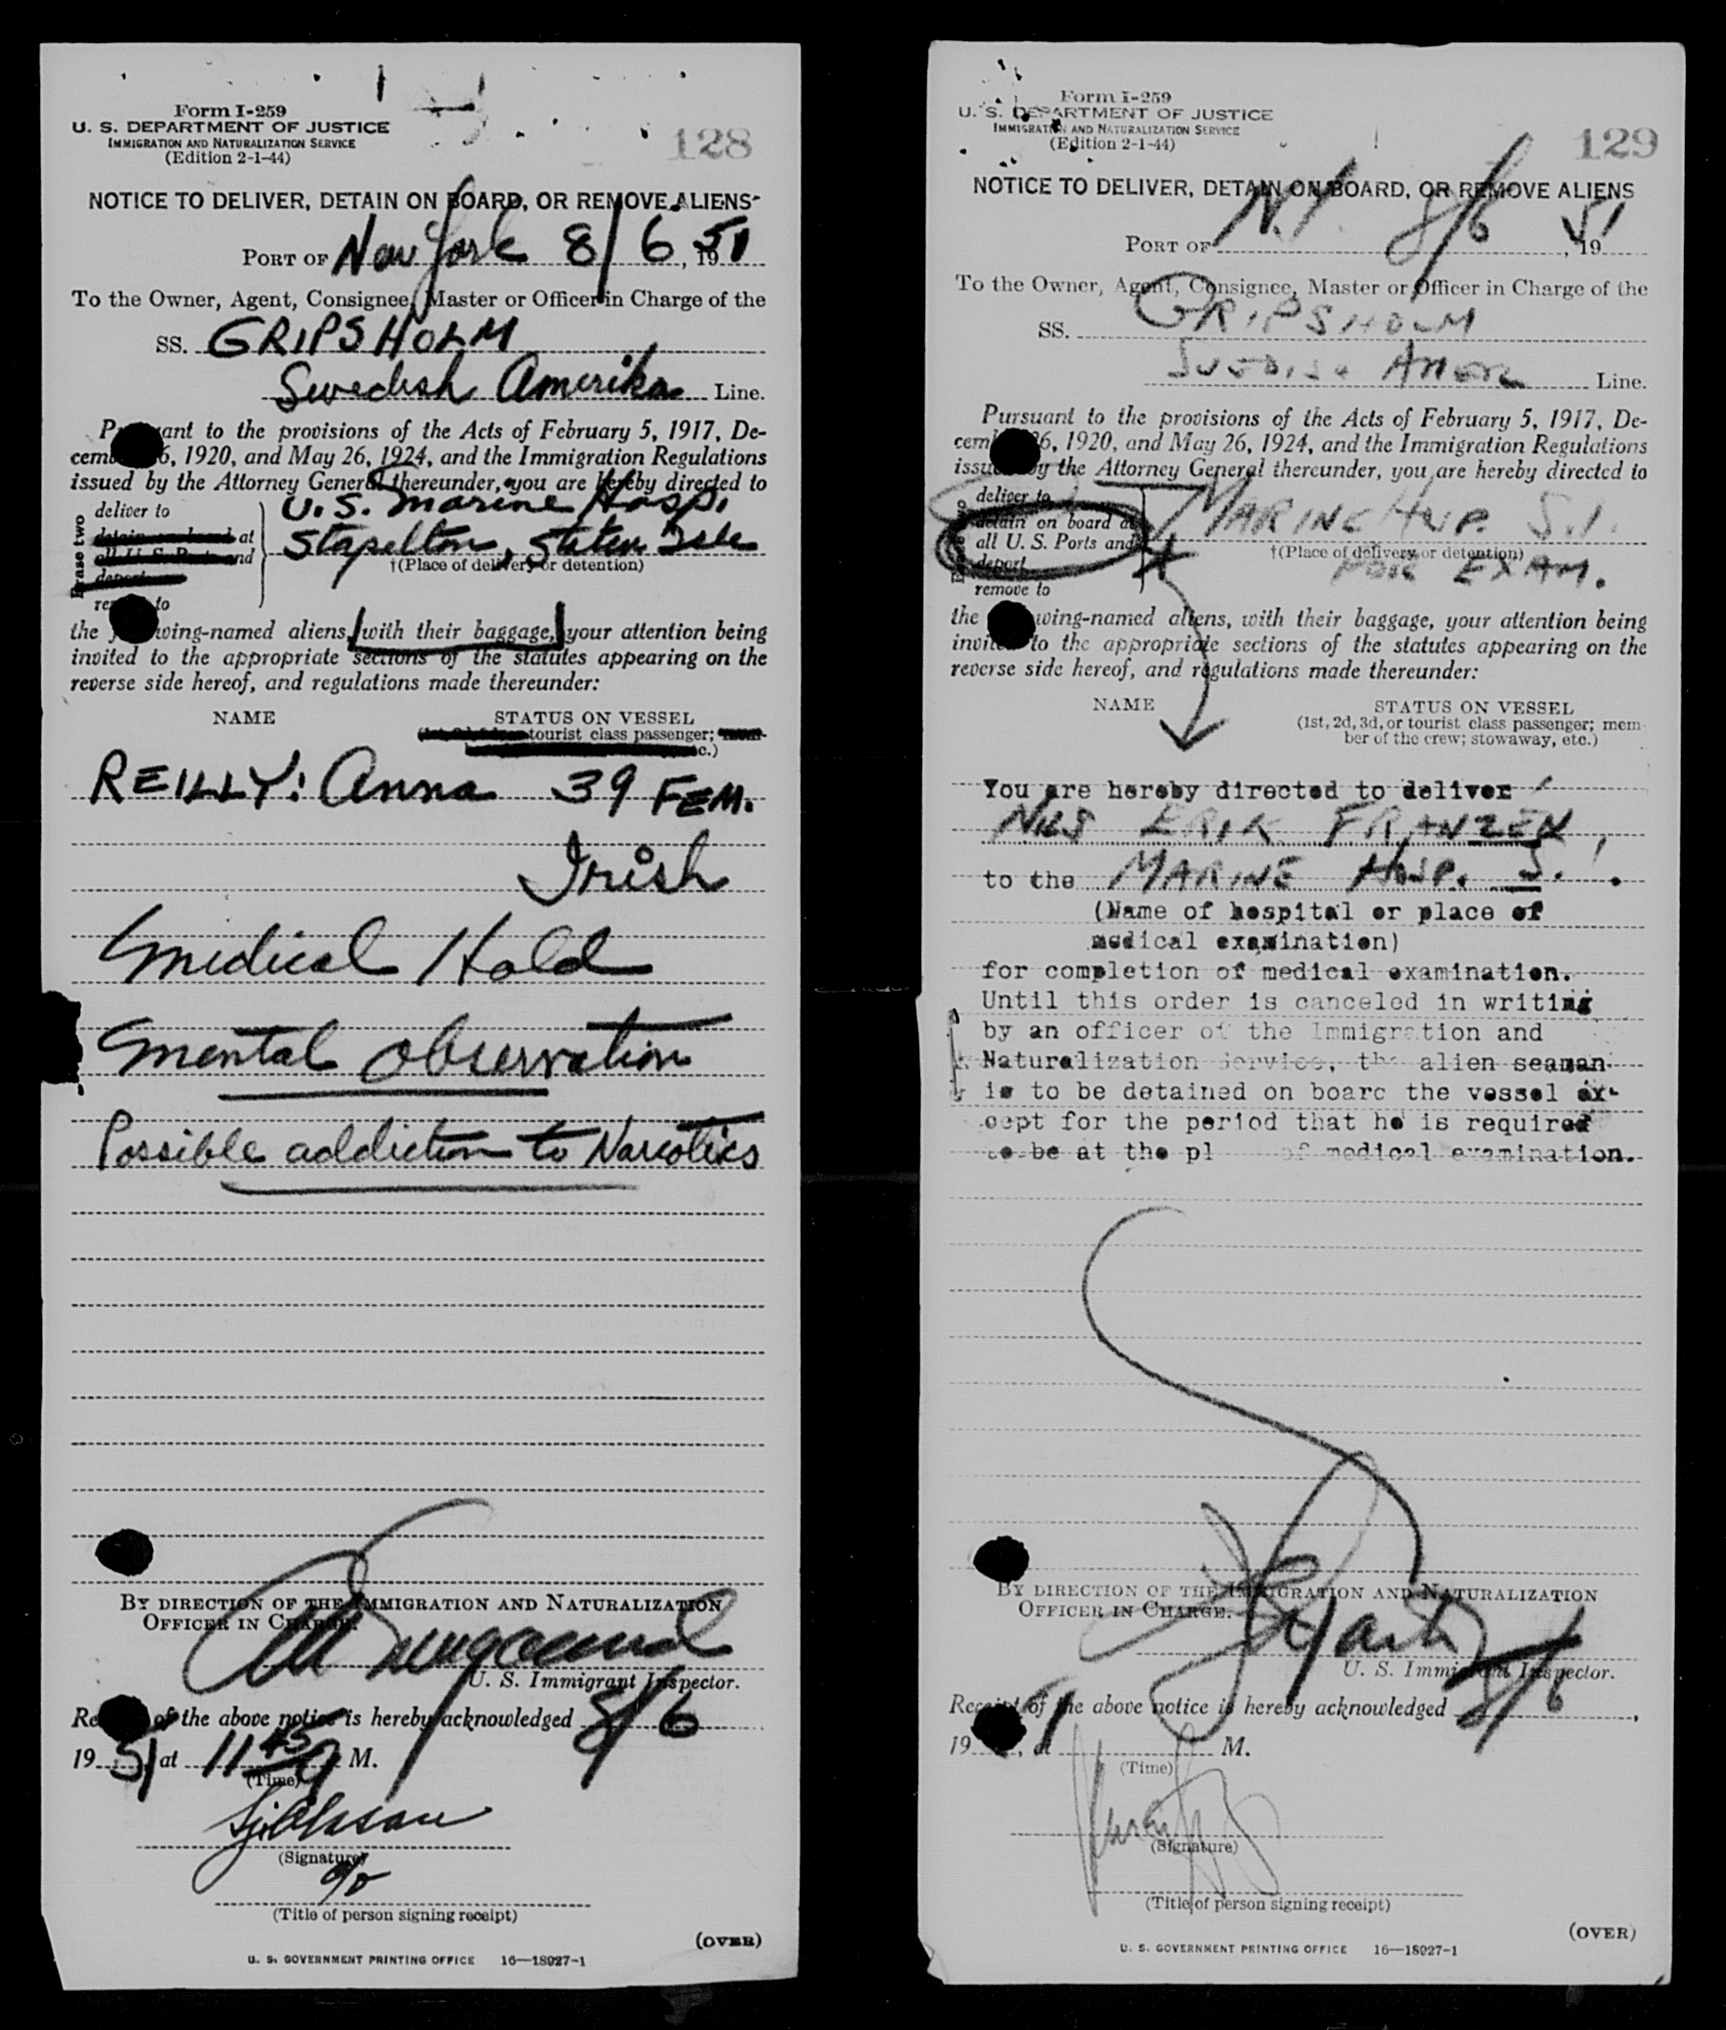 Form I-259
U. S. DEPARTMENT OF JUSTICE
IMMIGRATION AND NATURALIZATION SERVICE
(Edition 2-1-44)
128
NOTICE TO DELIVER, DETAIN ON BOARD, OR REMOVE ALIENS
PORT OF New York 8/6, 1951
To the Owner, Agent, Consignee, Master or Officer in Charge of the
SS. GRIPSHOLM
Swedish Amerika Line.
Pursuant to the provisions of the Acts of February 5, 1917, De-
cember 26, 1920, and May 26, 1924, and the Immigration Regulations
issued by the Attorney General thereunder, you are hereby directed to
Erase two
deliver to
detain on board at
all U. S. Ports and
deport
remove to
U.S. Marine Hosp.
Stapelton, Staten Isle
†(Place of delivery or detention)
the following-named aliens, with their baggage, your attention being
invited to the appropriate sections of the statutes appearing on the
reverse side hereof, and regulations made thereunder:
NAME STATUS ON VESSEL
tourist class passenger;
etc.)
REILLY: Anna 39 FEM.
Irish
Medical Hold
Mental Observation
Possible addiction to Narcotics
BY DIRECTION OF THE IMMIGRATION AND NATURALIZATION
OFFICER IN CHARGE.
U. S. Immigrant Inspector.
Receipt of the above notice is hereby acknowledged 8/6
1951, at 11 45 a M.
(Time)
(Signature)
(Title of person signing receipt)
(OVER)
U. S. GOVERNMENT PRINTING OFFICE 16—18927-1
Form I-259
U. S. DEPARTMENT OF JUSTICE
IMMIGRATION AND NATURALIZATION SERVICE
(Edition 2-1-44)
129
NOTICE TO DELIVER, DETAIN ON BOARD, OR REMOVE ALIENS
PORT OF N.Y. 8/6, 1951
To the Owner, Agent, Consignee, Master or Officer in Charge of the
SS. GRIPSHOLM
SWEDISH AMER Line.
Pursuant to the provisions of the Acts of February 5, 1917, De-
cember 26, 1920, and May 26, 1924, and the Immigration Regulations
issued by the Attorney General thereunder, you are hereby directed to
deliver to
detain on board at
all U. S. Ports and
deport
remove to
MARINE HOSP. S.I.
†(Place of delivery or detention)
FOR EXAM.
the following-named aliens, with their baggage, your attention being
invited to the appropriate sections of the statutes appearing on the
reverse side hereof, and regulations made thereunder:
NAME STATUS ON VESSEL
(1st, 2d, 3d, or tourist class passenger; mem-
ber of the crew; stowaway, etc.)
You are hereby directed to deliver
NILS ERIK FRANZEN
to the MARINE HOSP. S.I.
(Name of hospital or place of
medical examination)
for completion of medical examination.
Until this order is canceled in writing
by an officer of the Immigration and
Naturalization Service, the alien seaman
is to be detained on board the vessel ex-
cept for the period that he is required
to be at the pl of medical examination.
BY DIRECTION OF THE IMMIGRATION AND NATURALIZATION
OFFICER IN CHARGE.
U. S. Immigrant Inspector.
Receipt of the above notice is hereby acknowledged 8/6,
19, at M.
(Time)
(Signature)
(Title of person signing receipt)
(OVER)
U. S. GOVERNMENT PRINTING OFFICE 16—18927-1